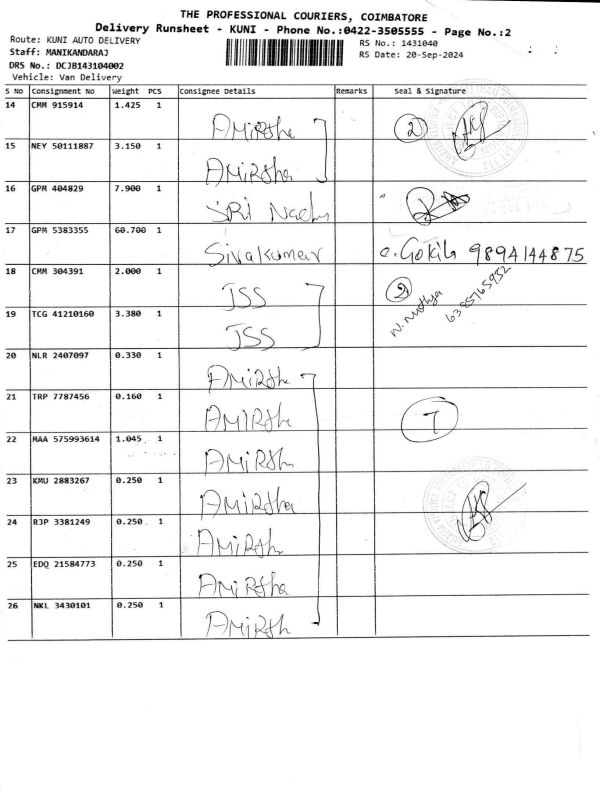 THE PROFESSIONAL COURIERS, COIMBATORE
Delivery Runsheet - KUNI - Phone No.:0422-3505555 - Page No.:2
Route: KUNI AUTO DELIVERY
RS No.: 1431040
Staff: MANIKANDARAJ
RS Date: 20-Sep-2024
DRS No.: DCJB143104002
Vehicle: Van Delivery
S No Consignment No Weight PCS Consignee Details Remarks Seal & Signature
14 CMM 915914 1.425 1 AMiRSha 2
15 NEY 50111887 3.150 1 AMiRSha
16 GPM 404829 7.900 1 SRi
17 GPM 5383355 60.700 1 Sivakumar c. Gokila 9894144875
18 CMM 304391 2.000 1 JSS 2
19 TCG 41210160 3.380 1 JSS N. Nithya 6385765952
20 NLR 2407097 0.330 1 AMiRSha
21 TRP 7787456 0.160 1 AMiRSha 7
22 MAA 575993614 1.045 1 AMiRSh
23 KMU 2883267 0.250 1 AMiRSha
24 RJP 3381249 0.250 1 AMiRSh
25 EDQ 21584773 0.250 1 AMiRSha
26 NKL 3430101 0.250 1 AMiRSh